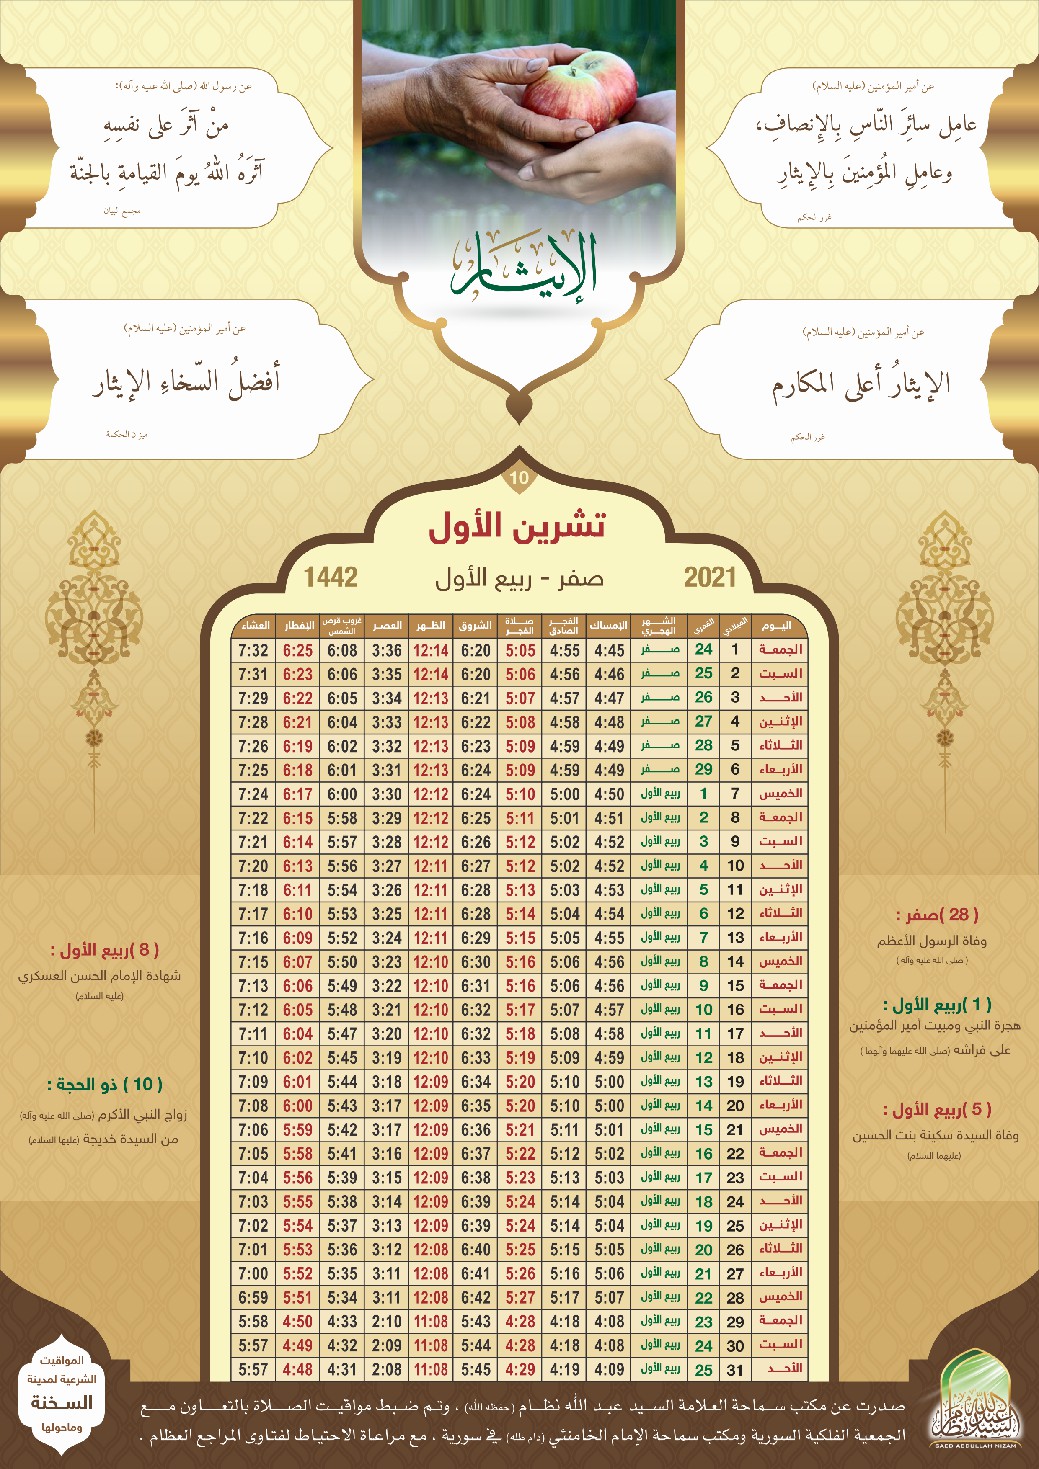 عن أمير المؤمنين (عليه السلام)
عامِل سائرَ النّاسِ بِالإنصافِ،
وعامِلِ المُؤمِنينَ بِالإيثارِ
غرر الحكم
عن رسول الله (صلى الله عليه وآله):
منْ آثرَ على نفسِهِ
آثرَهُ اللهُ يومَ القيامةِ بالجنّة
مجمع البيان
الإيثار
عن أمير المؤمنين (عليه السلام)
الإيثارُ أعلى المكارم
غرر الحكم
عن أمير المؤمنين (عليه السلام)
أفضلُ السّخاءِ الإيثار
ميزان الحكمة
10
تشرين الأول
2021 صفر - ربيع الأول 1442
اليوم الميلادي القمري الشهر الهجري الإمساك الفجر الصادق صلاة الفجر الشروق الظهر العصر غروب قرص الشمس الإفطار العشاء
الجمعة 1 24 صفر 4:45 4:55 5:05 6:20 12:14 3:36 6:08 6:25 7:32
السبت 2 25 صفر 4:46 4:56 5:06 6:20 12:14 3:35 6:06 6:23 7:31
الأحد 3 26 صفر 4:47 4:57 5:07 6:21 12:13 3:34 6:05 6:22 7:29
الإثنين 4 27 صفر 4:48 4:58 5:08 6:22 12:13 3:33 6:04 6:21 7:28
الثلاثاء 5 28 صفر 4:49 4:59 5:09 6:23 12:13 3:32 6:02 6:19 7:26
الأربعاء 6 29 صفر 4:49 4:59 5:09 6:24 12:13 3:31 6:01 6:18 7:25
الخميس 7 1 ربيع الأول 4:50 5:00 5:10 6:24 12:12 3:30 6:00 6:17 7:24
الجمعة 8 2 ربيع الأول 4:51 5:01 5:11 6:25 12:12 3:29 5:58 6:15 7:22
السبت 9 3 ربيع الأول 4:52 5:02 5:12 6:26 12:12 3:28 5:57 6:14 7:21
الأحد 10 4 ربيع الأول 4:52 5:02 5:12 6:27 12:11 3:27 5:56 6:13 7:20
الإثنين 11 5 ربيع الأول 4:53 5:03 5:13 6:28 12:11 3:26 5:54 6:11 7:18
الثلاثاء 12 6 ربيع الأول 4:54 5:04 5:14 6:28 12:11 3:25 5:53 6:10 7:17
الأربعاء 13 7 ربيع الأول 4:55 5:05 5:15 6:29 12:11 3:24 5:52 6:09 7:16
الخميس 14 8 ربيع الأول 4:56 5:06 5:16 6:30 12:10 3:23 5:50 6:07 7:15
الجمعة 15 9 ربيع الأول 4:56 5:06 5:16 6:31 12:10 3:22 5:49 6:06 7:13
السبت 16 10 ربيع الأول 4:57 5:07 5:17 6:32 12:10 3:21 5:48 6:05 7:12
الأحد 17 11 ربيع الأول 4:58 5:08 5:18 6:32 12:10 3:20 5:47 6:04 7:11
الإثنين 18 12 ربيع الأول 4:59 5:09 5:19 6:33 12:10 3:19 5:45 6:02 7:10
الثلاثاء 19 13 ربيع الأول 5:00 5:10 5:20 6:34 12:09 3:18 5:44 6:01 7:09
الأربعاء 20 14 ربيع الأول 5:00 5:10 5:20 6:35 12:09 3:17 5:43 6:00 7:08
الخميس 21 15 ربيع الأول 5:01 5:11 5:21 6:36 12:09 3:17 5:42 5:59 7:06
الجمعة 22 16 ربيع الأول 5:02 5:12 5:22 6:37 12:09 3:16 5:41 5:58 7:05
السبت 23 17 ربيع الأول 5:03 5:13 5:23 6:38 12:09 3:15 5:39 5:56 7:04
الأحد 24 18 ربيع الأول 5:04 5:14 5:24 6:39 12:09 3:14 5:38 5:55 7:03
الإثنين 25 19 ربيع الأول 5:04 5:14 5:24 6:39 12:09 3:13 5:37 5:54 7:02
الثلاثاء 26 20 ربيع الأول 5:05 5:15 5:25 6:40 12:08 3:12 5:36 5:53 7:01
الأربعاء 27 21 ربيع الأول 5:06 5:16 5:26 6:41 12:08 3:11 5:35 5:52 7:00
الخميس 28 22 ربيع الأول 5:07 5:17 5:27 6:42 12:08 3:11 5:34 5:51 6:59
الجمعة 29 23 ربيع الأول 4:08 4:18 4:28 5:43 11:08 2:10 4:33 4:50 5:58
السبت 30 24 ربيع الأول 4:08 4:18 4:28 5:44 11:08 2:09 4:32 4:49 5:57
الأحد 31 25 ربيع الأول 4:09 4:19 4:29 5:45 11:08 2:08 4:31 4:48 5:57
( 28 )صفر :
وفاة الرسول الأعظم
( صلى الله عليه وآله )
( 1 )ربيع الأول :
هجرة النبي ومبيت أمير المؤمنين
على فراشه (صلى الله عليهما وآلهما )
( 5 )ربيع الأول :
وفاة السيدة سكينة بنت الحسين
(عليهما السلام)
( 8 )ربيع الأول :
شهادة الإمام الحسن العسكري
(عليه السلام)
( 10 ) ذو الحجة :
زواج النبي الأكرم (صلى الله عليه وآله)
من السيدة خديجة (عليها السلام)
المواقيت
الشرعية لمدينة
السخنة
وماحولها
صدرت عن مكتب سماحة العلامة السيد عبد الله نظام (حفظه الله) ، وتم ضبط مواقيت الصلاة بالتعاون مع
الجمعية الفلكية السورية ومكتب سماحة الإمام الخامنئي (دام ظله) في سورية ، مع مراعاة الاحتياط لفتاوى المراجع العظام .
السيد عبد الله نظام
SAED ABDULLAH NIZAM